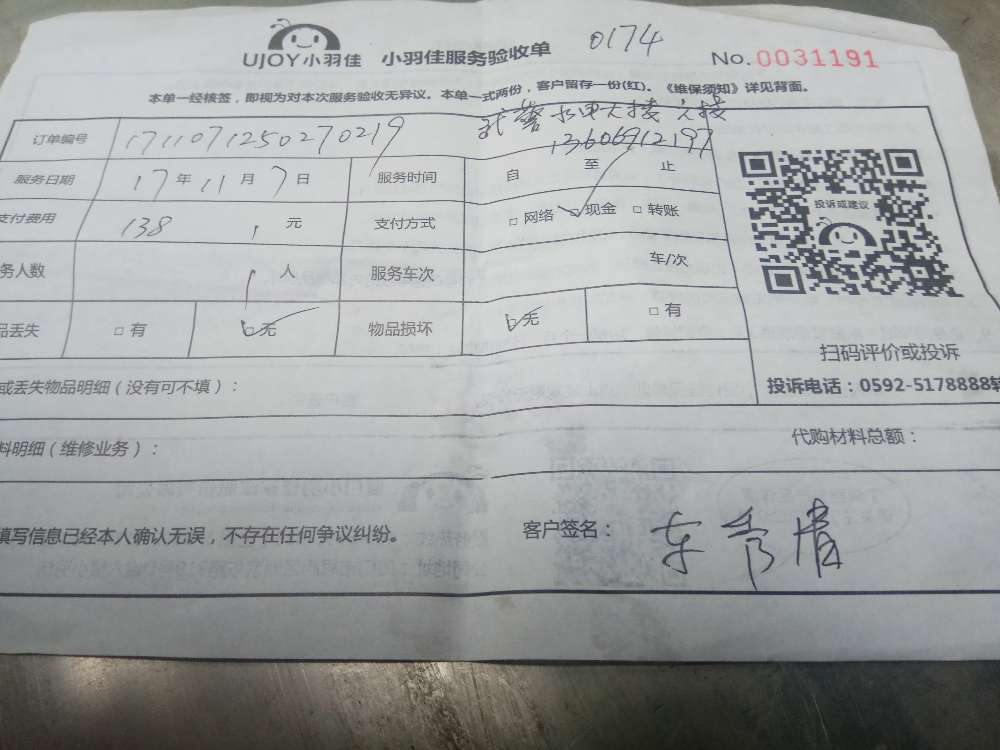 UJOY小羽佳 小羽佳服务验收单 0174 No.0031191
本单一经核签，即视为对本次服务验收无异议。本单一式两份，客户留存一份(红)。《维保须知》详见背面。
订单编号 1711071250270219
13606912197
服务日期 17年11月7日 服务时间 自 至 止
支付费用 138 元 支付方式 □网络 □现金 □转账
务人数 1 人 服务车次 车/次
品丢失 □有 □无 物品损坏 □无 □有
投诉或建议
扫码评价或投诉
投诉电话：0592-5178888转
或丢失物品明细（没有可不填）：
料明细（维修业务）： 代购材料总额：
填写信息已经本人确认无误，不存在任何争议纠纷。 客户签名：